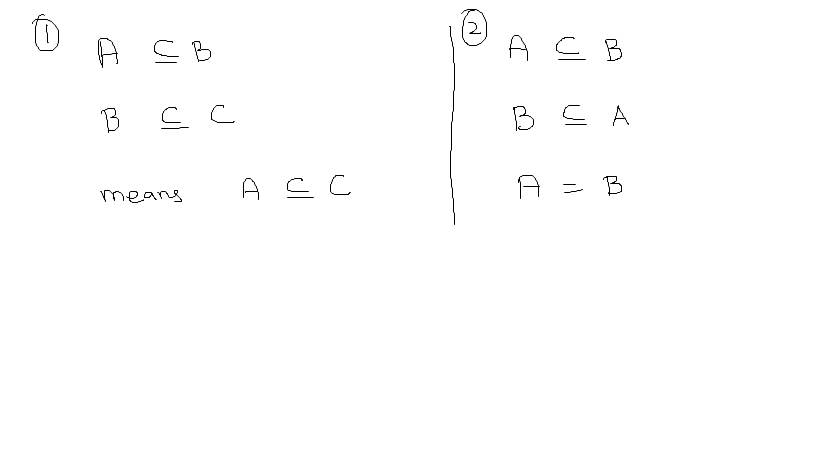 ① A ⊆ B
B ⊆ C
means A ⊆ C
② A ⊆ B
B ⊆ A
A = B